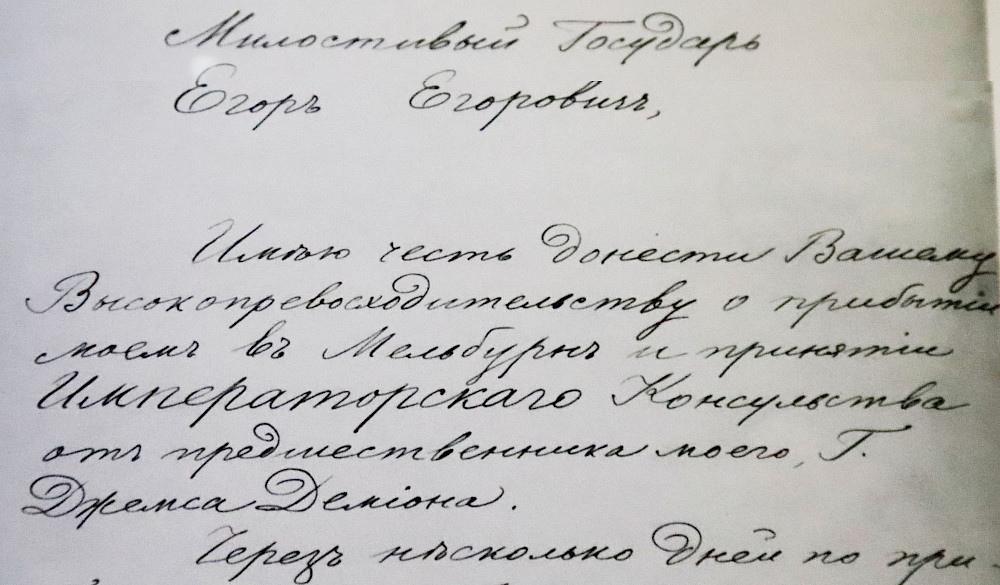 Милостивый Государь
Егоръ Егоровичъ,
Имѣю честь донести Вашему
Высокопревосходительству о прибытіи
моемъ въ Мельбурнъ и принятіи
Императорскаго Консульства
отъ предшественника моего, Г.
Джемса Деміона.
Черезъ нѣсколько дней по при-